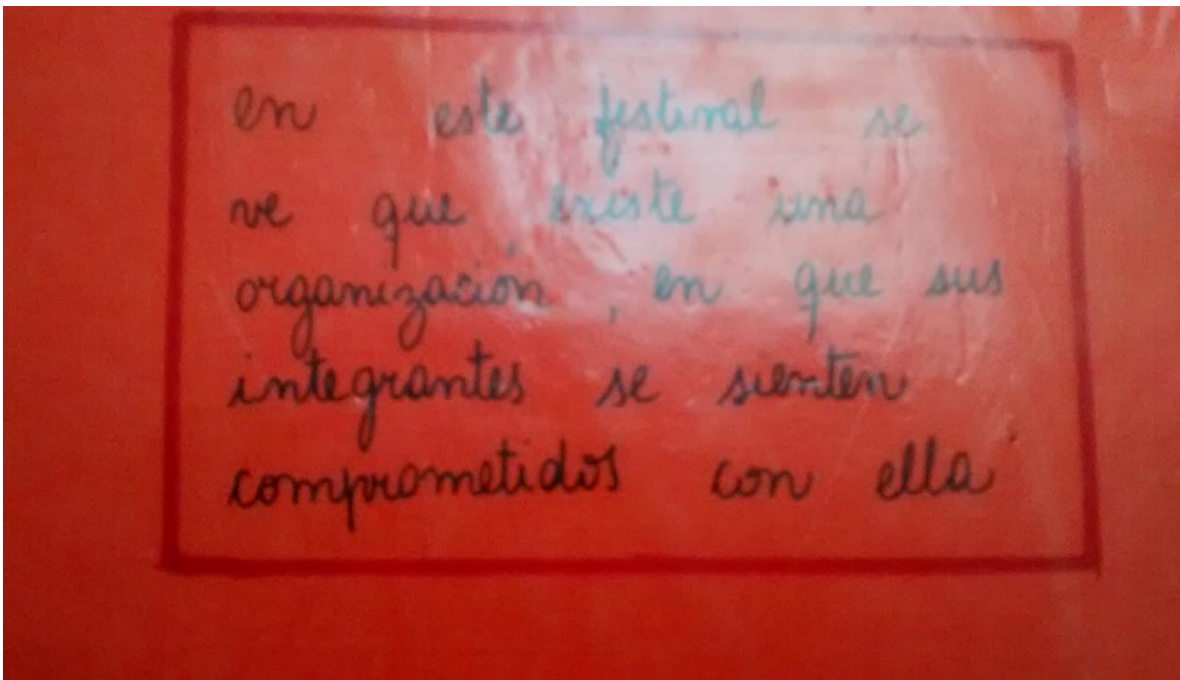 en este festival se
ve que existe una
organización, en que sus
integrantes se sienten
comprometidos con ella